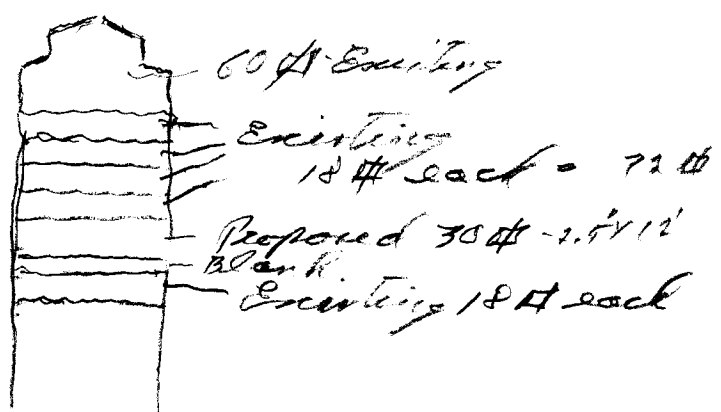 60 ⌗ Exciting
Existing
18 ⌗ each = 72 ⌗
Proposed 30 ⌗ - 2.5' x 12'
Blank
Existing 18 ⌗ each